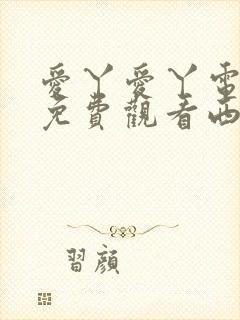 愛丫愛丫電
免費觀看西
習顏